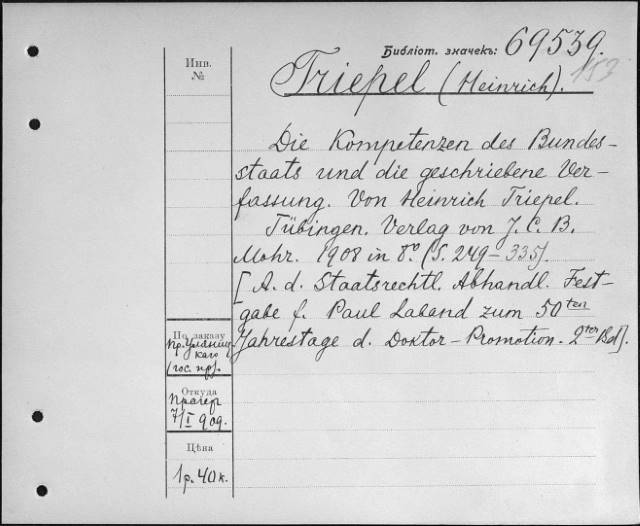 Библіот. значекъ: 69539.
153
Инв.
№
Triepel (Heinrich).
Die Kompetenzen des Bundes-
staats und die geschriebene Ver-
fassung. Von Heinrich Triepel.
Tübingen. Verlag von J. C. B.
Mohr. 1908 in 8º. (S. 249-335).
[A. d. Staatsrechtl. Abhandl. Fest-
gabe f. Paul Laband zum 50ten
Jahrestage d. Doktor-Promotion. 2ter Bd].
По заказу
пр.
каго
(гос. пр).
Откуда
Прагер
7/I 909.
Цѣна
1р. 40к.